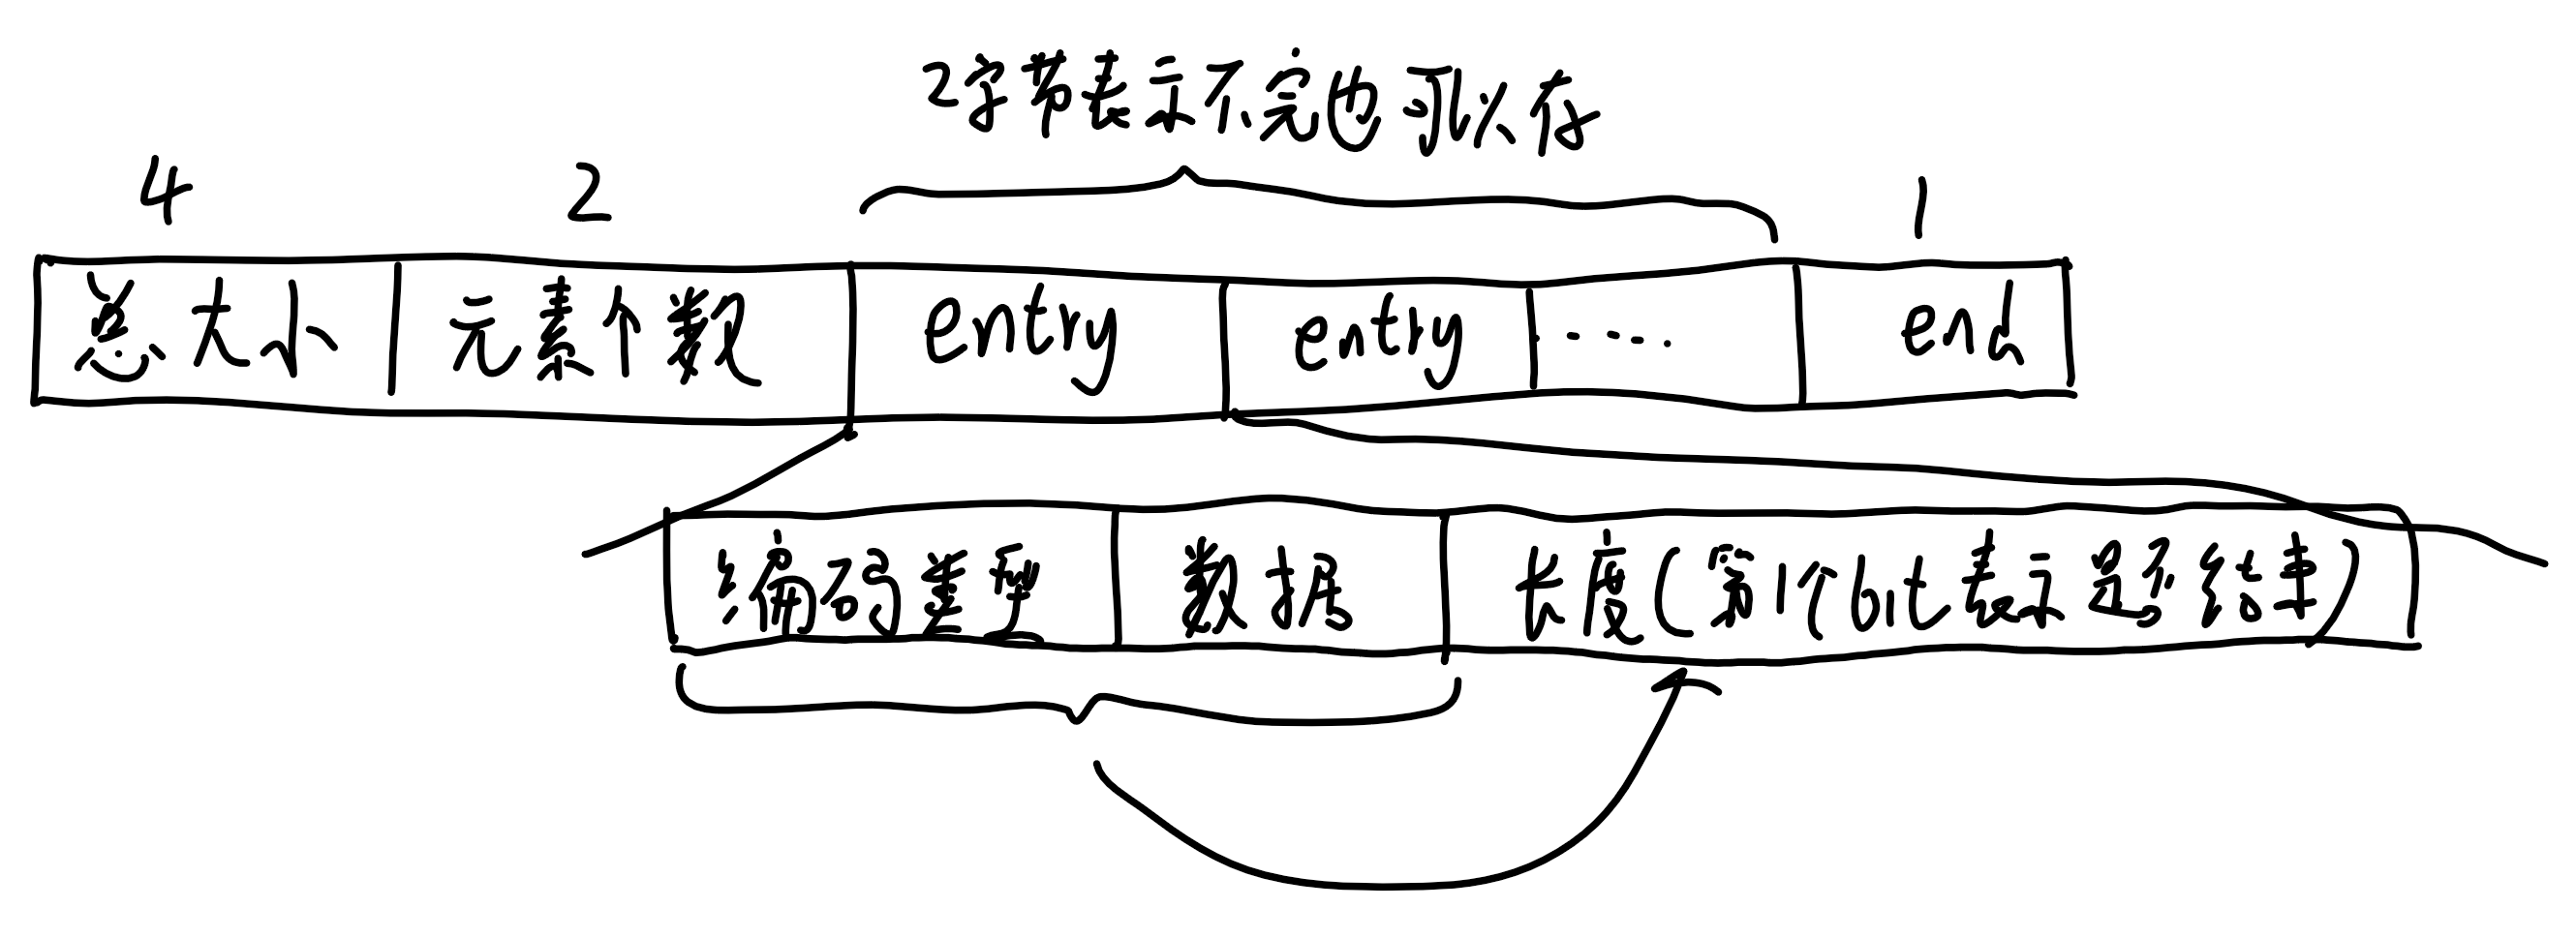 2字节表示不完也可以存
4 2 1
总大小 元素个数 entry entry ..... end
编码类型 数据 长度(第1个bit表示是否结束)